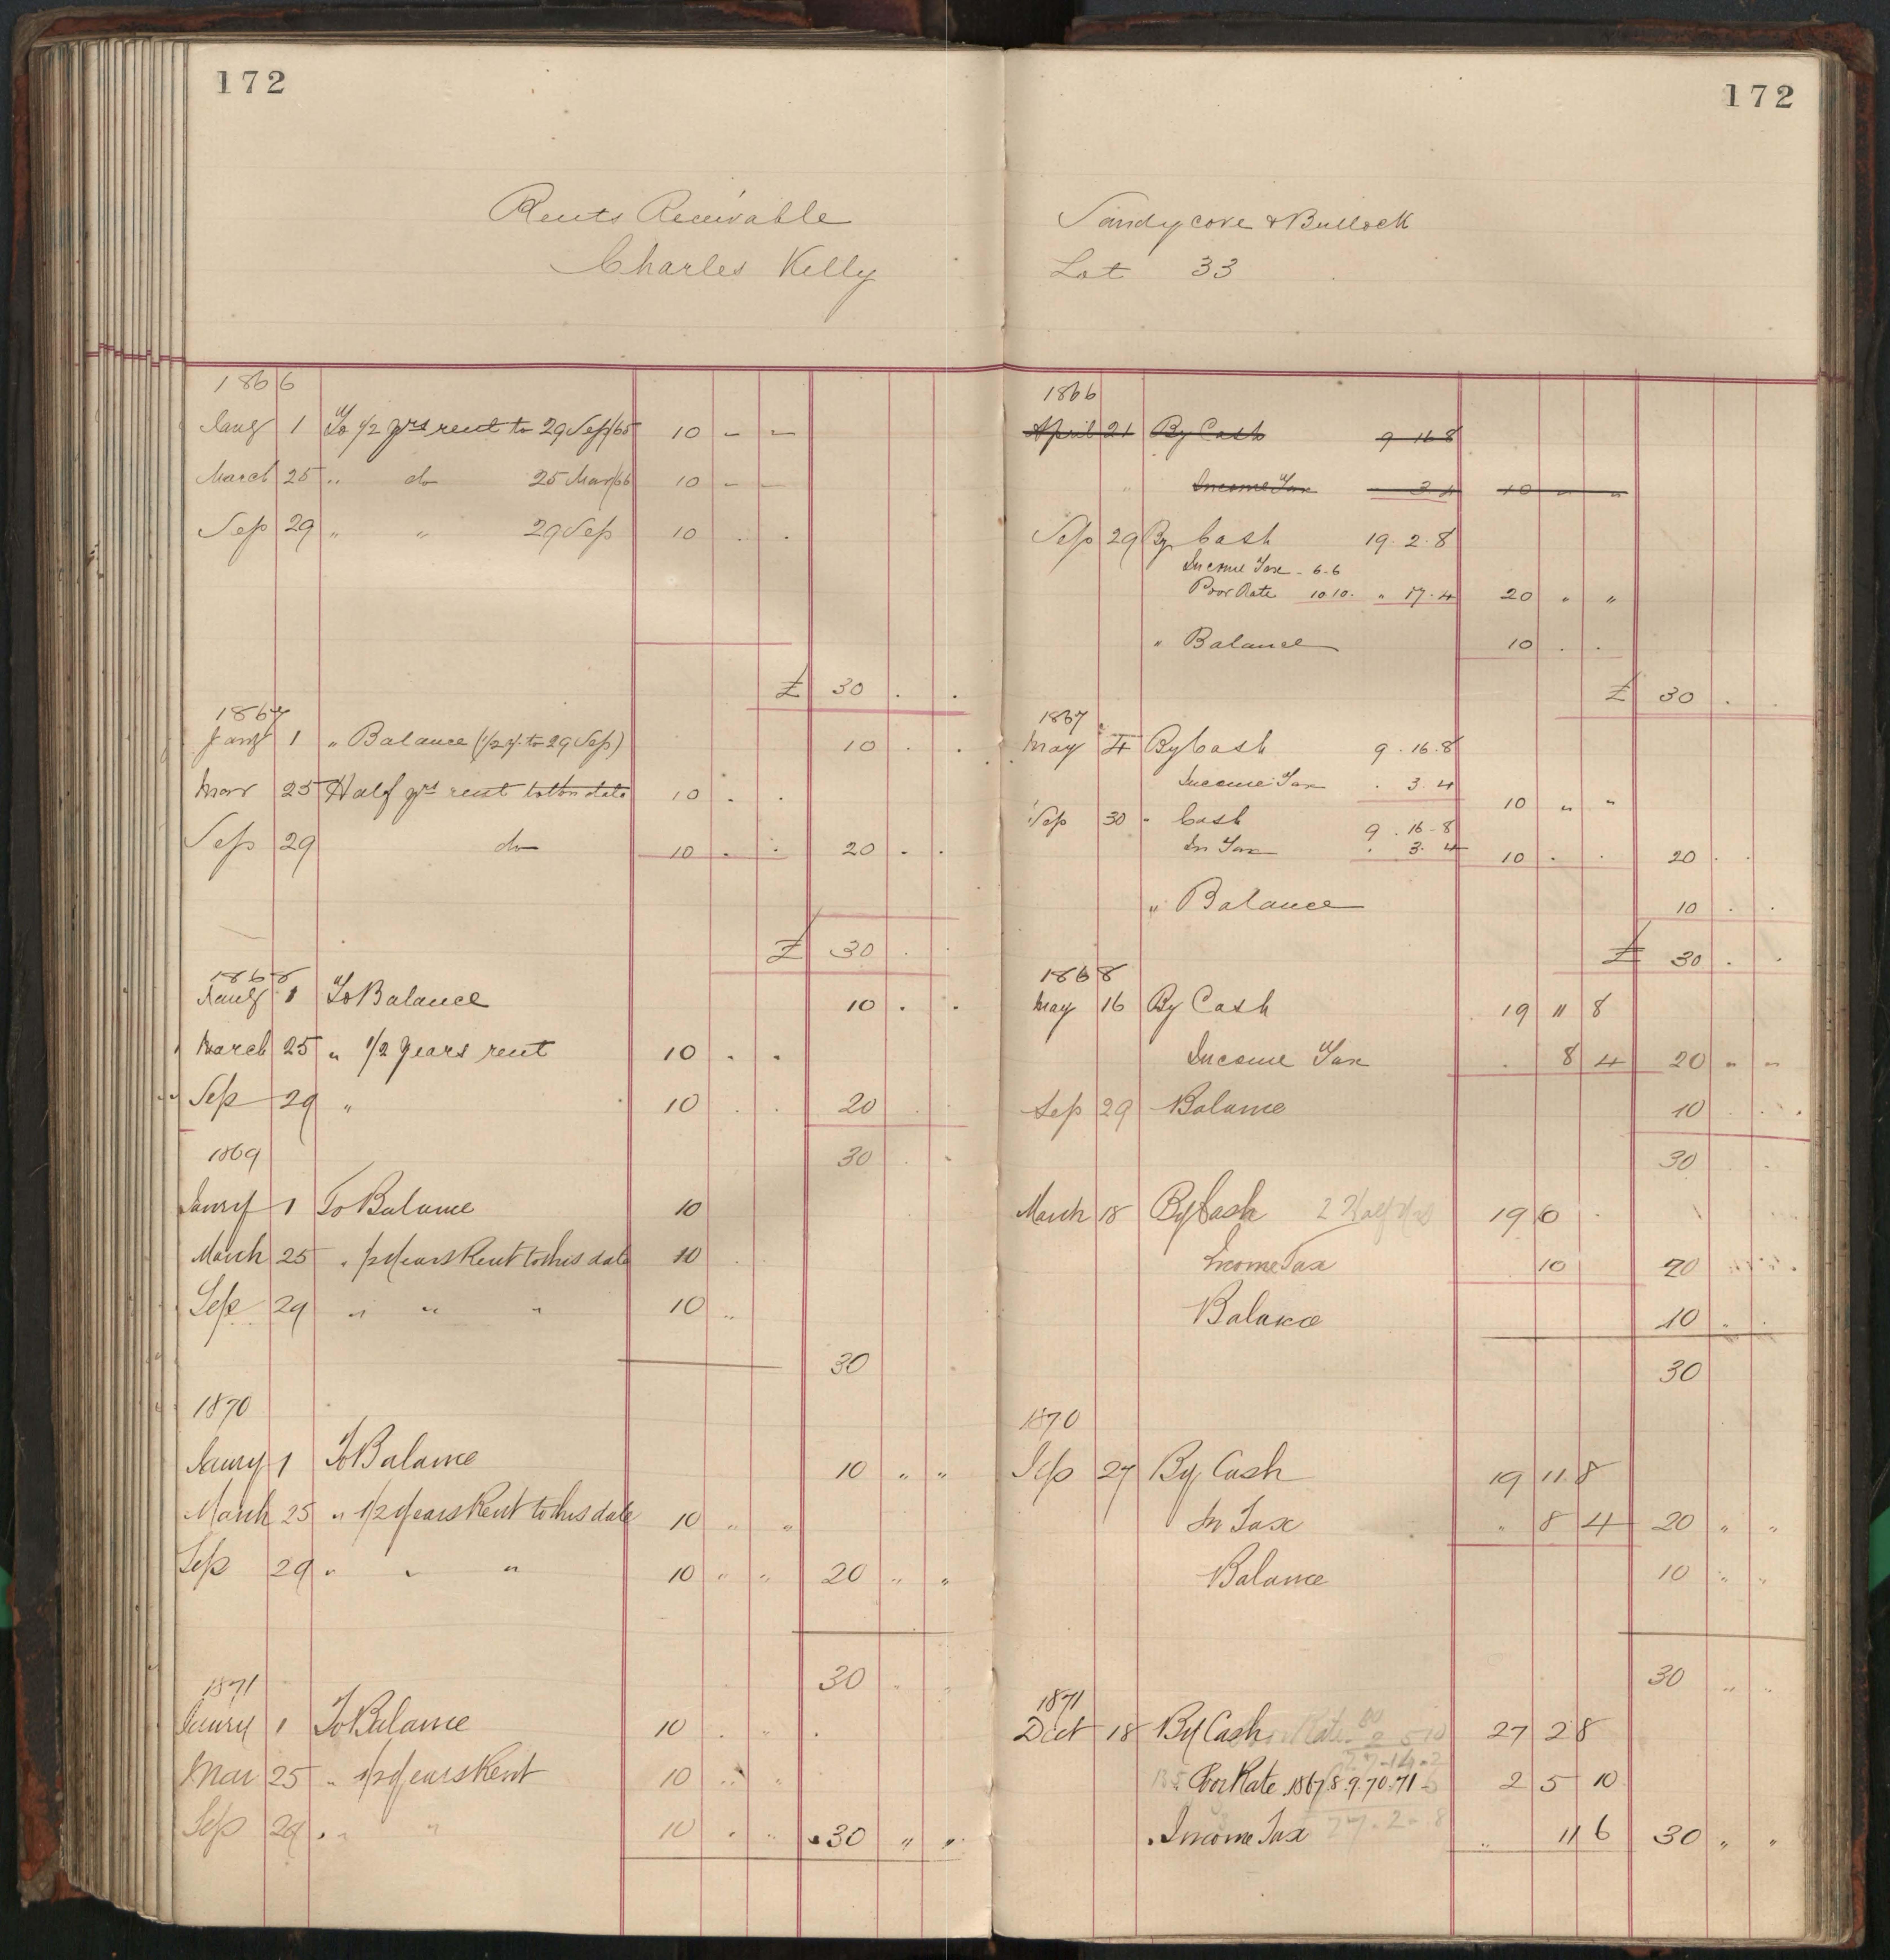 172
Rents Receivable
Charles Kelly
1866
Jany 1 To 1/2 yrs rent to 29 Sep/65 10 - -
March 25 " do 25 Mar/66 10 - -
Sep 29 " " 29 Sep 10 . .
£ 30 . .
1867
Jany 1 " Balance (1/2 y. to 29 Sep) 10 . .
Mar 25 Half yrs rent to this date 10 . .
Sep 29 do 10 . . 20 . .
£ 30 . .
1868
Jany 1 To Balance 10 . .
March 25 " 1/2 years rent 10 . .
Sep 29 " 10 . . 20 . .
30 . .
1869
Janry 1 To Balance 10
March 25 " 1/2 Years Rent to this date 10 .
Sep 29 " " " 10 "
30
1870
Janry 1 To Balance 10 " "
March 25 " 1/2 Years Rent to this date 10 " "
Sep 29 " " " 10 " " 20 " "
30 " "
1871
Janry 1 To Balance 10 . " .
Mar 25 " 1/2 Years Rent 10 " "
Sep 29 " " " 10 . " 30 " "
172
Sandycove & Bullock
Lot 33
1866
April 21 By Cash 9 16 8
" Income Tax 3 4 10 - -
Sep 29 By Cash 19. 2. 8
Income Tax - 6-6
Poor Rate 10 10. " 17. 4 20 " "
" Balance 10 . .
£ 30 .
1867
May 4 By Cash 9. 16. 8
Income Tax . 3 4 10 " "
Sep 30 " Cash 9. 16-8
In Tax . 3. 4 10 . . 20 . .
" Balance 10 . .
£ 30 . .
1868
May 16 By Cash 19 11 8
Income Tax . 8 4 20 " "
Sep 29 Balance 10 . .
30 . .
March 18 By Cash 2 Half 19 0 .
Income Tax 10 20
Balance 10 " .
30
1870
Sep 27 By Cash 19 11 8
In Tax " 8 4 20 " "
Balance 10 " "
30 " "
1871
Dect 18 By Cash 27 2 8
Rate 2 5 10
27-14-2
Poor Rate 1867.8.9.70.71 2 5 10
. Income Tax 27-2-8 " 11 6 30 " "